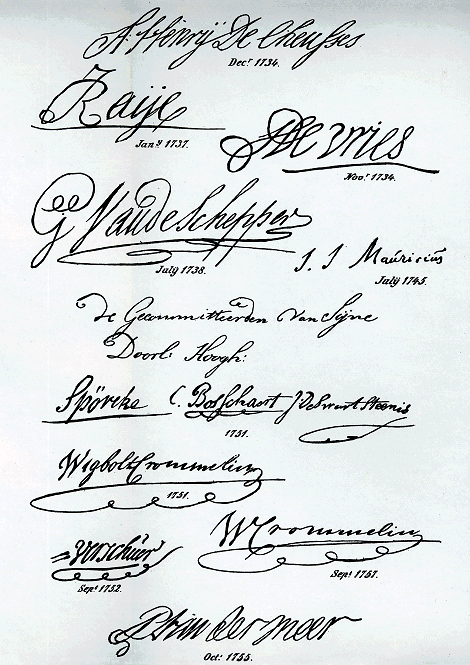 A. Henrÿ De Cheusses
Decr. 1734.
Raije
Jany. 1737.
De Vries
Novr. 1734.
G VandeSchepper
July 1738.
J. J Mauricius
July 1745.
de Gecommitteerden van Sijne
Doorl: Hoogh:
Spörcke ( Bosschaert ) Deswart Steenis
1751.
Wigbolt Crommelin
1751.
Verschuer
Sept. 1752.
WCrommelin
Sept. 1757.
PVan der meer
Oct: 1755.